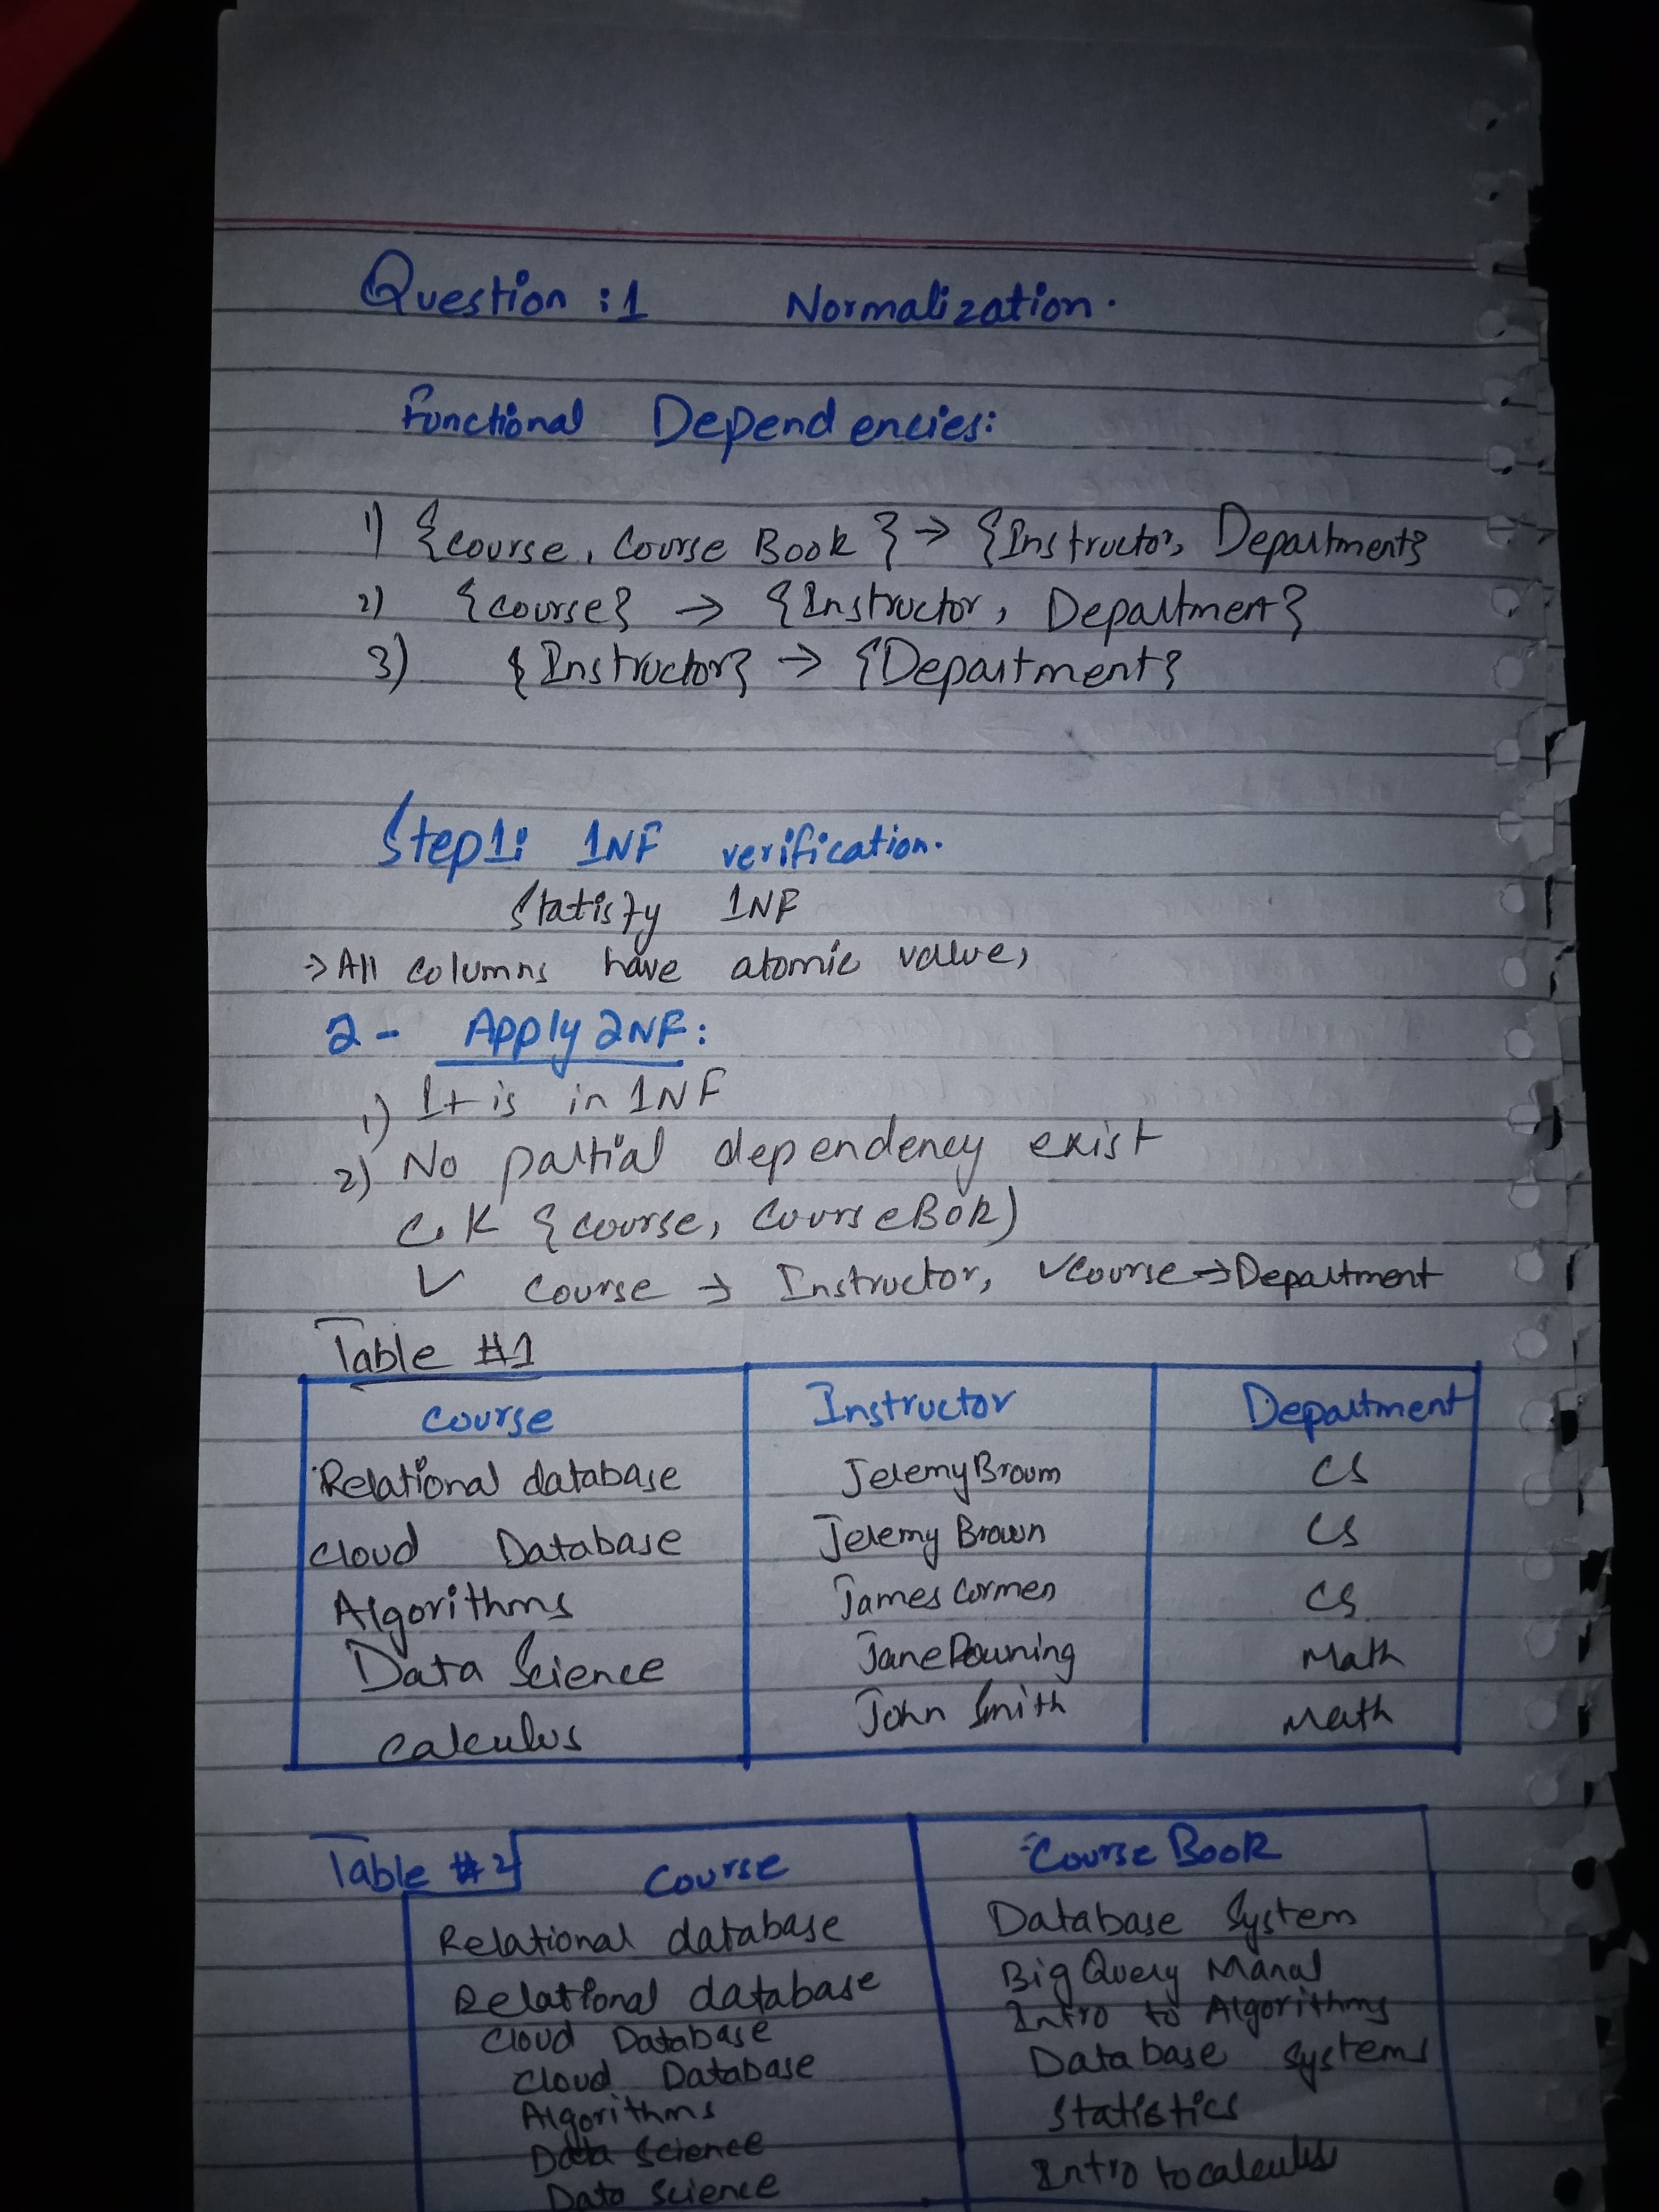 Question :1 Normalization.
Functional Dependencies:
1) {course, Course Book } → {Instructor, Department}
2) {course} → {Instructor, Department}
3) {Instructor} → {Department}
Step1: 1NF verification.
Statisfy 1NF
→ All columns have atomic value,
2- Apply 2NF:
1) It is in 1NF
2) No partial dependency exist
C.K {course, CourseBok)
✓ Course → Instructor, ✓Course→Department
Table #1
course Instructor Department
Relational database Jeremy Broum CS
Cloud Database Jeremy Brown CS
Algorithms James Cormen CS
Data Science Jane Downing Math
Calculus John Smith Math
Table #2 Course Course Book
Relational database Database System
Relational database Big Query Manal
Cloud Database Intro to Algorithms
Cloud Database Database Systems
Algorithms Statistics
Data Science
Data Science Intro to calculus